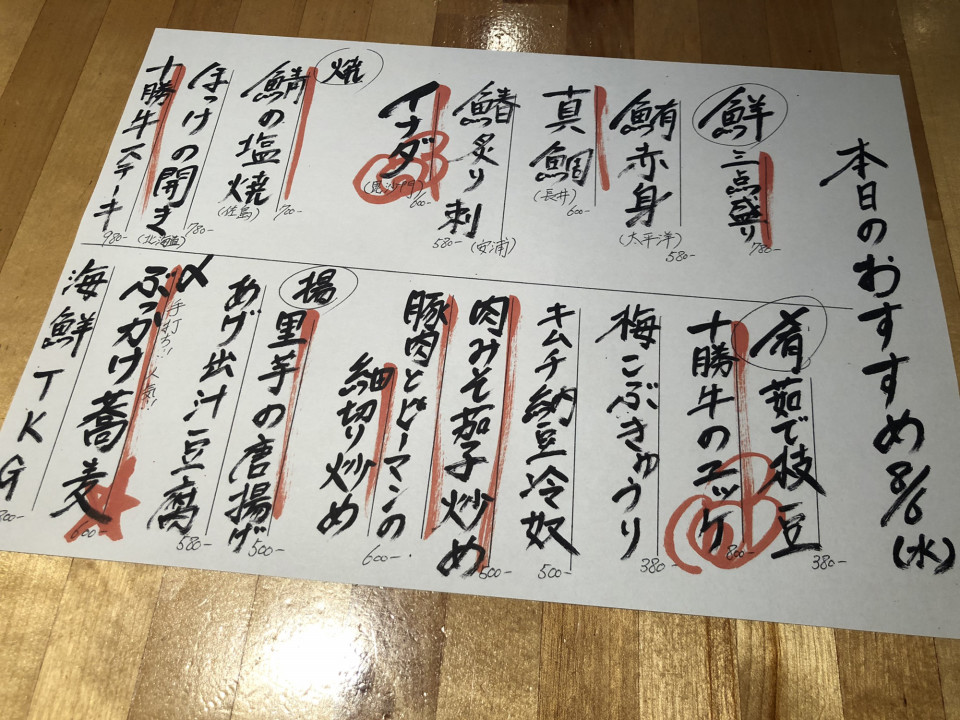 本日のおすすめ 8/6(水)
鮮
三点盛り 780-
鮪赤身 (太平洋) 580-
真鯛 (長井) 600-
鰆炙り刺 (安浦) 580-
イナダ 600-
焼
鯖の塩焼 (佐島) 700-
ほっけの開き (北海道) 780-
十勝牛ステーキ 980-
肴
茹で枝豆 380-
十勝牛のユッケ 800-
梅こぶきゅうり 380-
キムチ納豆冷奴 500-
肉みそ茄子炒め 600-
豚肉とピーマンの
細切り炒め 600-
揚
里芋の唐揚げ 500-
あげ出汁豆腐 580-
〆
手打ち!!人気!!
ぶっかけ蕎麦 600-
海鮮TKG